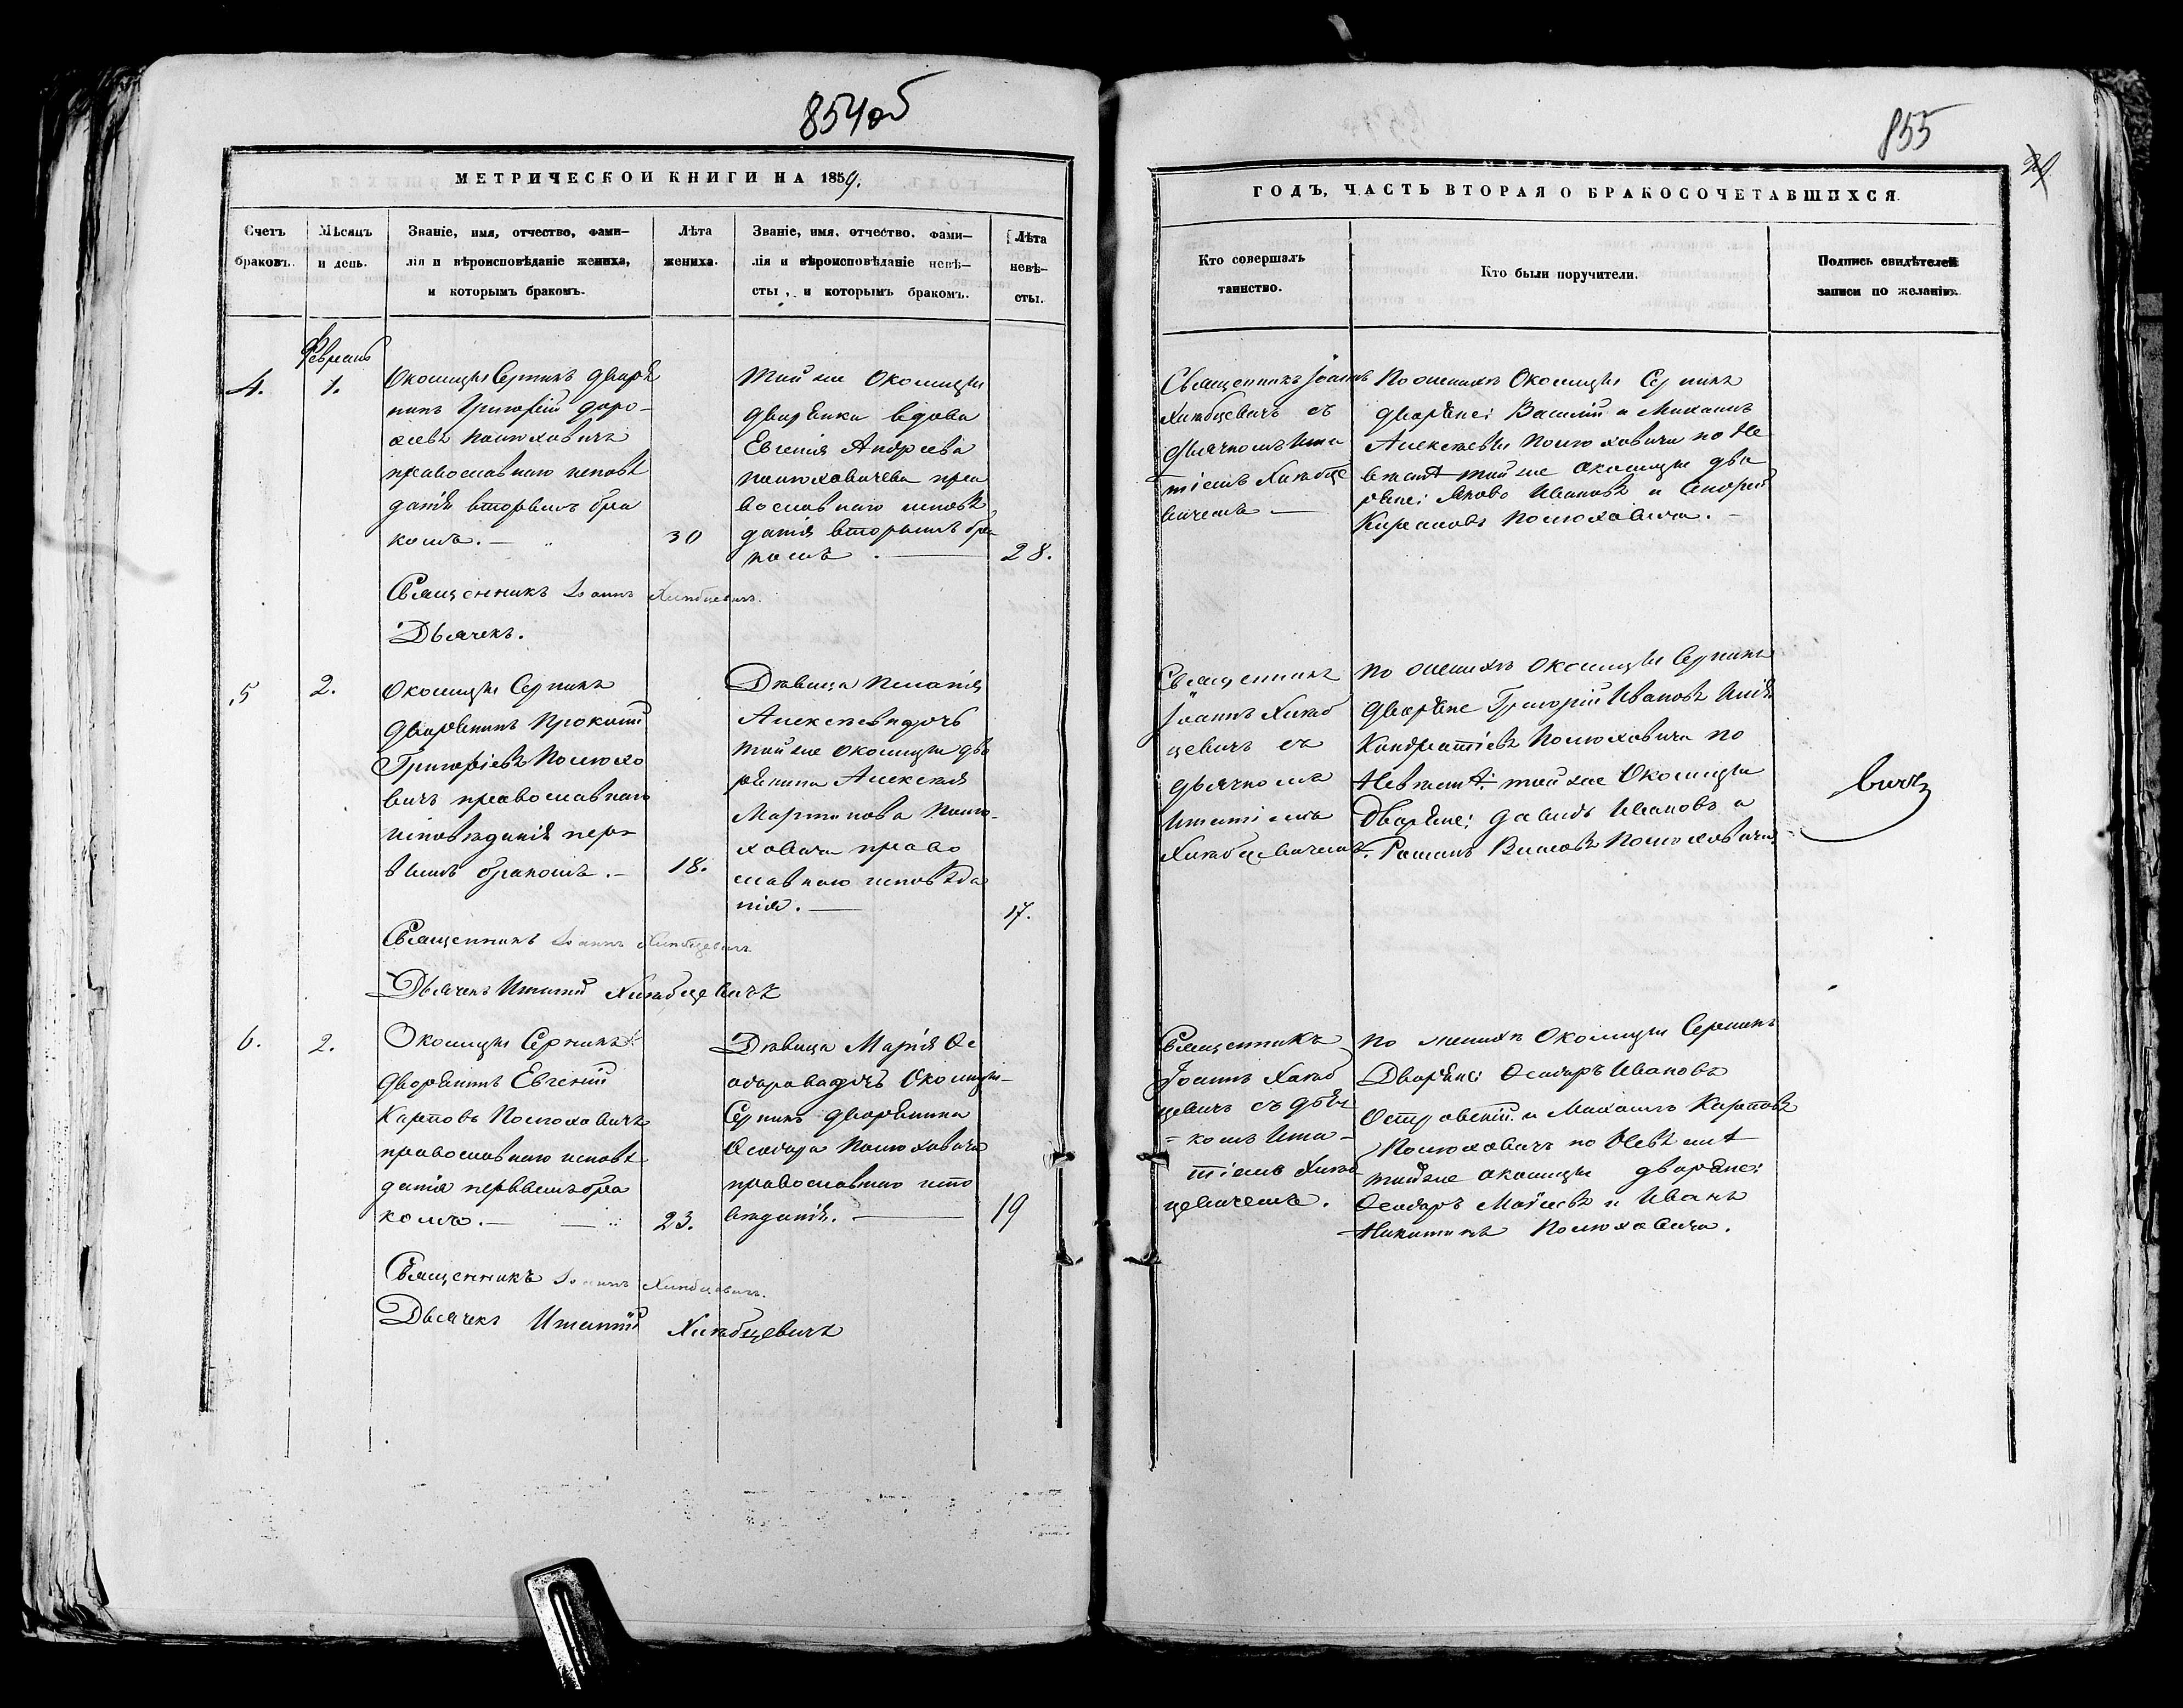 854об
МЕТРИЧЕСКОЙ КНИГИ НА 1859.
Счетъ браковъ.
Мѣсяцъ и день.
Званіе, имя, отчество, фами-
лія и вѣроисповѣданіе жениха,
и которымъ бракомъ.
Лѣта
жениха.
Званіе, имя, отчество, фами-
лія и вѣроисповѣданіе невѣ-
сты, и которымъ бракомъ.
Лѣта
невѣ-
сты.
Февраль
4.
1.
Околицы Серникъ дворѣ
нинъ Григорій
Полюховичъ
православнаго исповѣ
данія вторымъ бра
комъ.
30
Той же Околицы
дворянка вдова
Евгенія Андреева
Полюховичева пра
вославнаго исповѣ
данія вторымъ бра
комъ.
28.
Священникъ Іоаннъ Хлѣбцевичъ.
Дьячекъ.
5
2.
Околицы Серникъ
дворянинъ Прокопій
Григорьевъ Полюхо
вичъ православнаго
исповѣданія пер-
вымъ бракомъ.
18.
Дѣвица Пелагія
Алексѣева дочь
той же околицы дво
рянина Алексѣя
Мартинова Полю-
ховича право
славнаго исповѣда
нія.
17.
Священникъ Іоаннъ Хлѣбцевичъ
Дьячекъ Игнатій Хлѣбцевичъ
6.
2.
Околицы Серникъ
дворянинъ Евгеній
Карповъ Полюховичъ
православнаго исповѣ
данія первымъ бра
комъ.
23.
Дѣвица Марія Ѳе
одорова дочь Околицы
Серникъ дворянина
Ѳеодора Полюховича
православнаго испо
вѣданія.
19
Священникъ Іоаннъ Хлѣбцевичъ.
Дьячекъ Игнатій Хлѣбцевичъ
855
ГОДЪ, ЧАСТЬ ВТОРАЯ О БРАКОСОЧЕТАВШИХСЯ.
Кто совершалъ
таинство.
Кто были поручители.
Подпись свидѣтелей
записи по желанію.
Священникъ Іоаннъ
Хлѣбцевичъ съ
дьячкомъ Игна
тіемъ Хлѣбце
вичемъ
По женихѣ Околицы Серникъ
дворяне: Василій и Михаилъ
Алексѣевы Полюховичи по не
вѣстѣ той же околицы дво
ряне: Яковъ Ивановъ и Андрей
Карповъ Полюховичи.
Священникъ
Іоаннъ Хлѣб
цевичъ съ
дьячкомъ
Игнатіемъ
Хлѣбцевичемъ.
По женихѣ околицы Серникъ
дворяне Григорій Ивановъ Илія
Кондратіевъ Полюховичи по
Невѣстѣ: той же Околицы
Дворяне: Давидъ Ивановъ и
Романъ Полюховичи
вичъ
Священникъ
Іоаннъ Хлѣб
цевичъ съ дья
=комъ Игна-
тіемъ Хлѣб
цевичемъ.
По женихѣ Околицы Серникъ
Дворяне: Ѳеодоръ Ивановъ
Островскій и Михаилъ Карповъ
Полюховичъ по Невѣстѣ
той же околицы дворяне:
Ѳеодоръ Моѵсеевъ и Иванъ
Никитинъ Полюховичи.